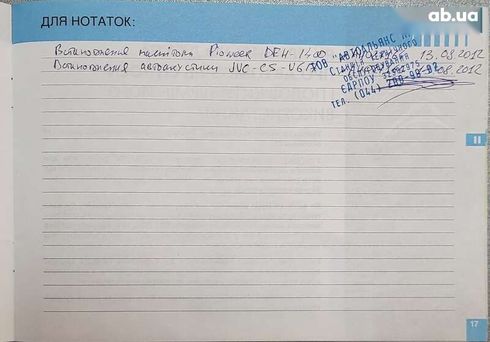 ab.ua
ДЛЯ НОТАТОК:
Встановлення магнітоли Pioneer DEH-1400 13.08.2012
Встановлення автоакустики JVC-CS-V6 .08.2012
ТОВ "АВТОАЛЬЯНС
Станція
обслуговування
ЄДРПОУ
тел. (044)
17